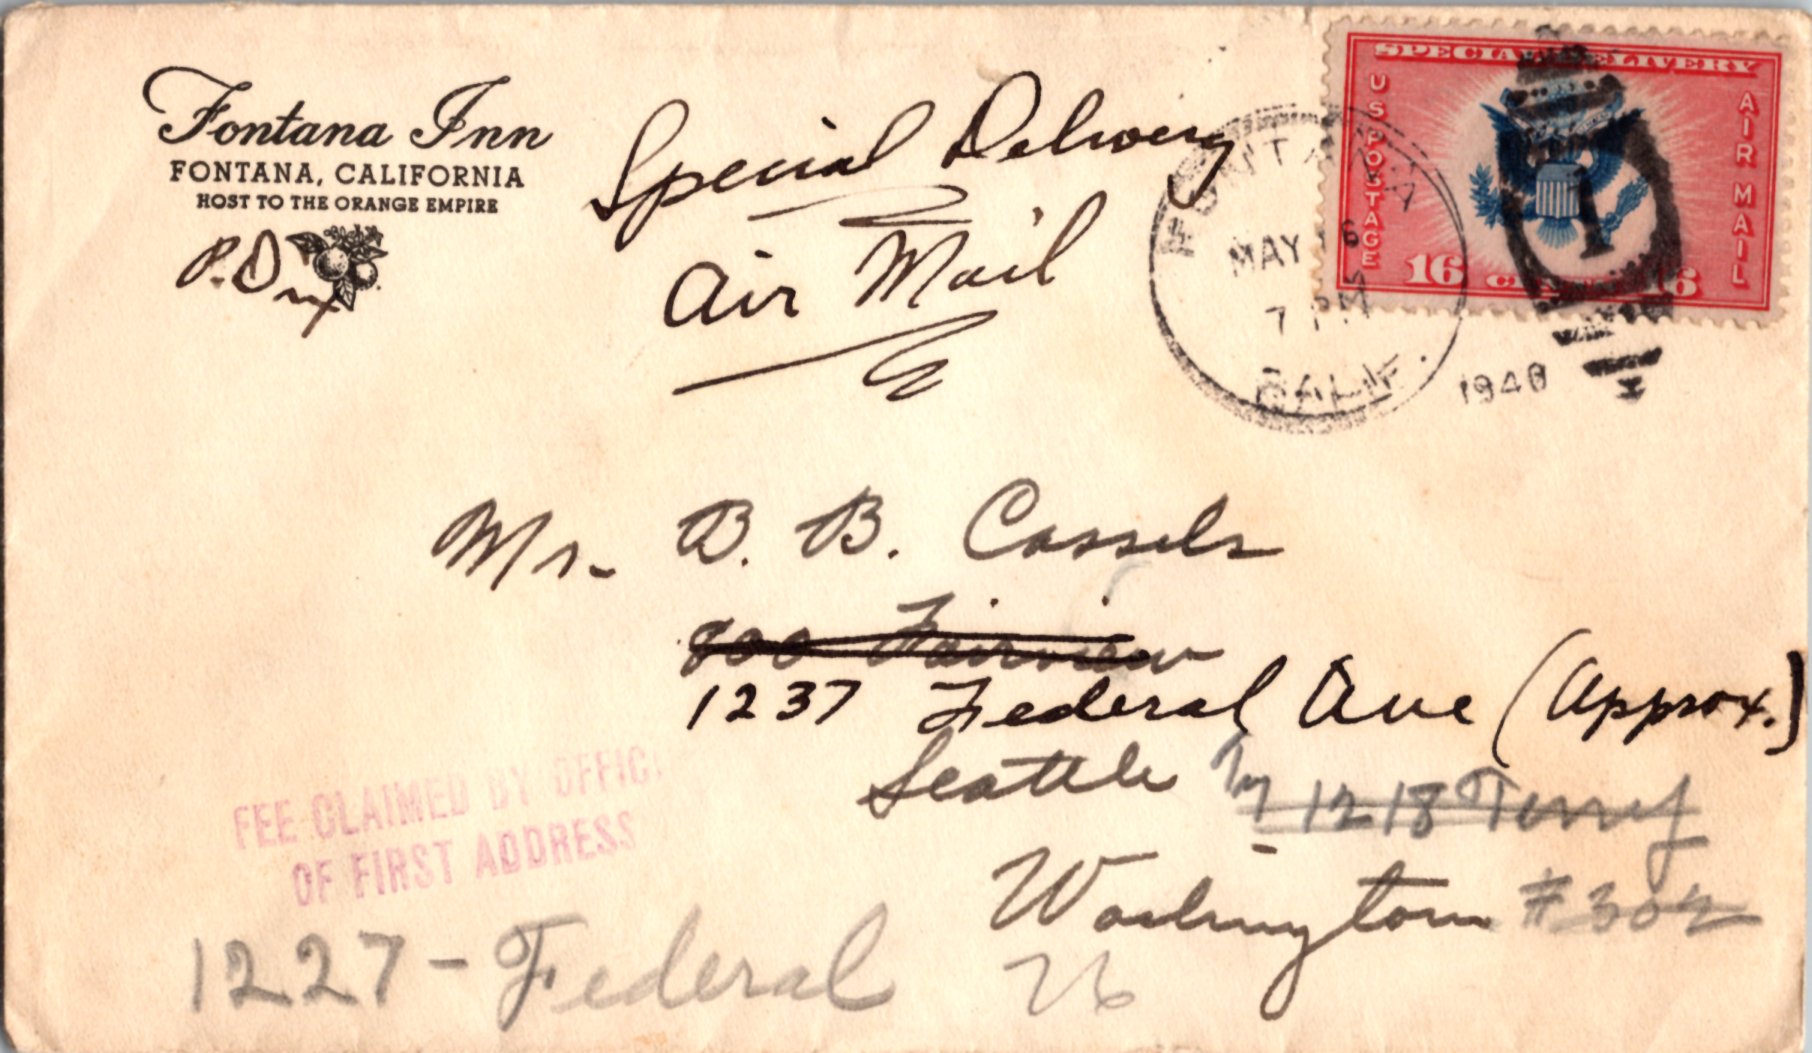 Fontana Inn
FONTANA, CALIFORNIA
HOST TO THE ORANGE EMPIRE
Special Delivery
Air Mail
SPECIAL DELIVERY
U S POSTAGE
AIR MAIL
16 16
FONTANA
MAY 16
7 PM
CALIF.
1940
1
Mr. B. B. Cassels
800 Fairview
1237 Federal Ave (Approx.)
Seattle
Try 1218 Terry
Washington #302
FEE CLAIMED BY OFFICE
OF FIRST ADDRESS
1227 - Federal